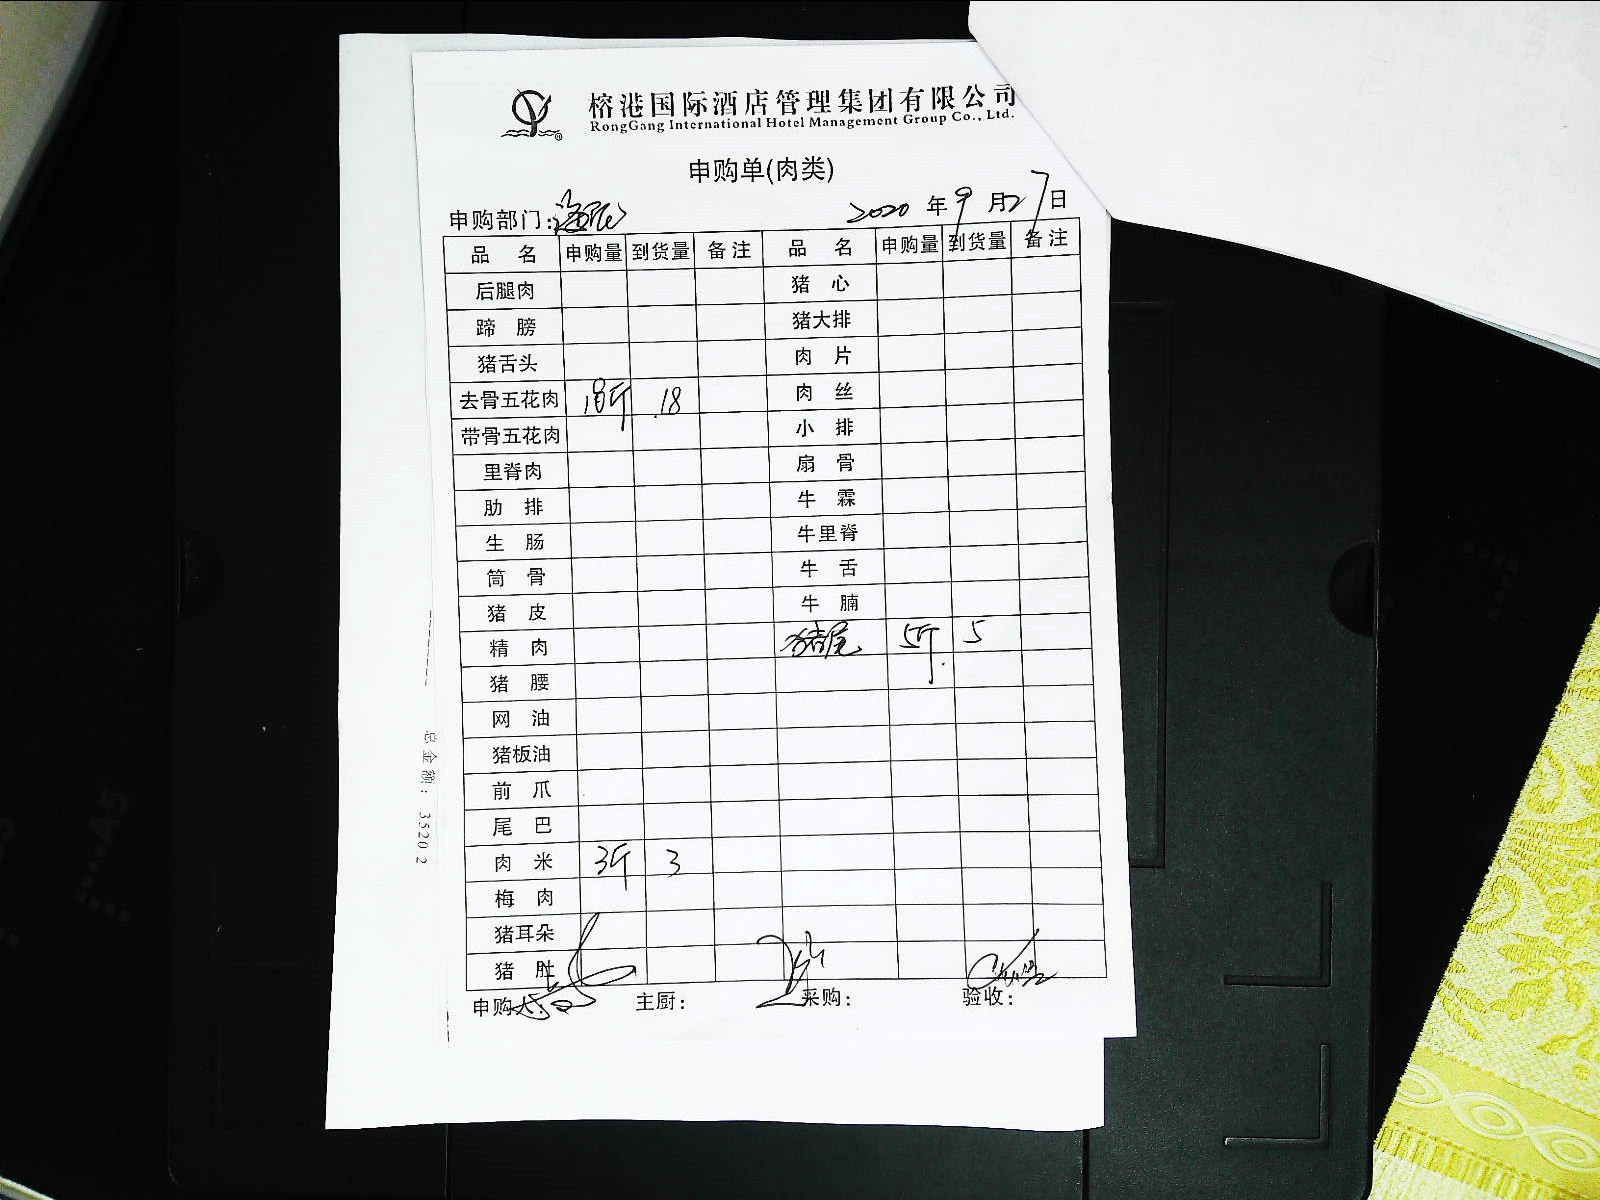 榕港国际酒店管理集团有限公司
RongGang International Hotel Management Group Co., Ltd.
申购单(肉类)
申购部门: 2020 年 9 月 27 日
品 名 申购量 到货量 备注 品 名 申购量 到货量 备注
后腿肉 猪 心
蹄 膀 猪大排
猪舌头 肉 片
去骨五花肉 18斤 18 肉 丝
带骨五花肉 小 排
里脊肉 扇 骨
肋 排 牛 霖
生 肠 牛里脊
筒 骨 牛 舌
猪 皮 牛 腩
精 肉 猪尾 5斤 5
猪 腰
网 油
猪板油
前 爪
尾 巴
肉 米 3斤 3
梅 肉
猪耳朵
猪 肚
申购人: 主厨: 采购: 验收:
总金额: 3520.2